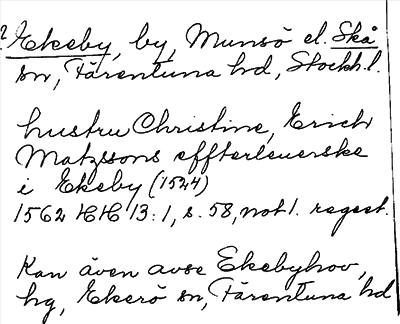 ? Ekeby, by, Munsö el. Skå
sn, Färentuna hd, Stockh.l.
hustru Christine, Erich
Matzssons effterleuerske
i Ekeby (1524)
1562 HH 13:1, s. 58, not 1. regest.
Kan även avse Ekebyhov,
hg, Ekerö sn, Färentuna hd